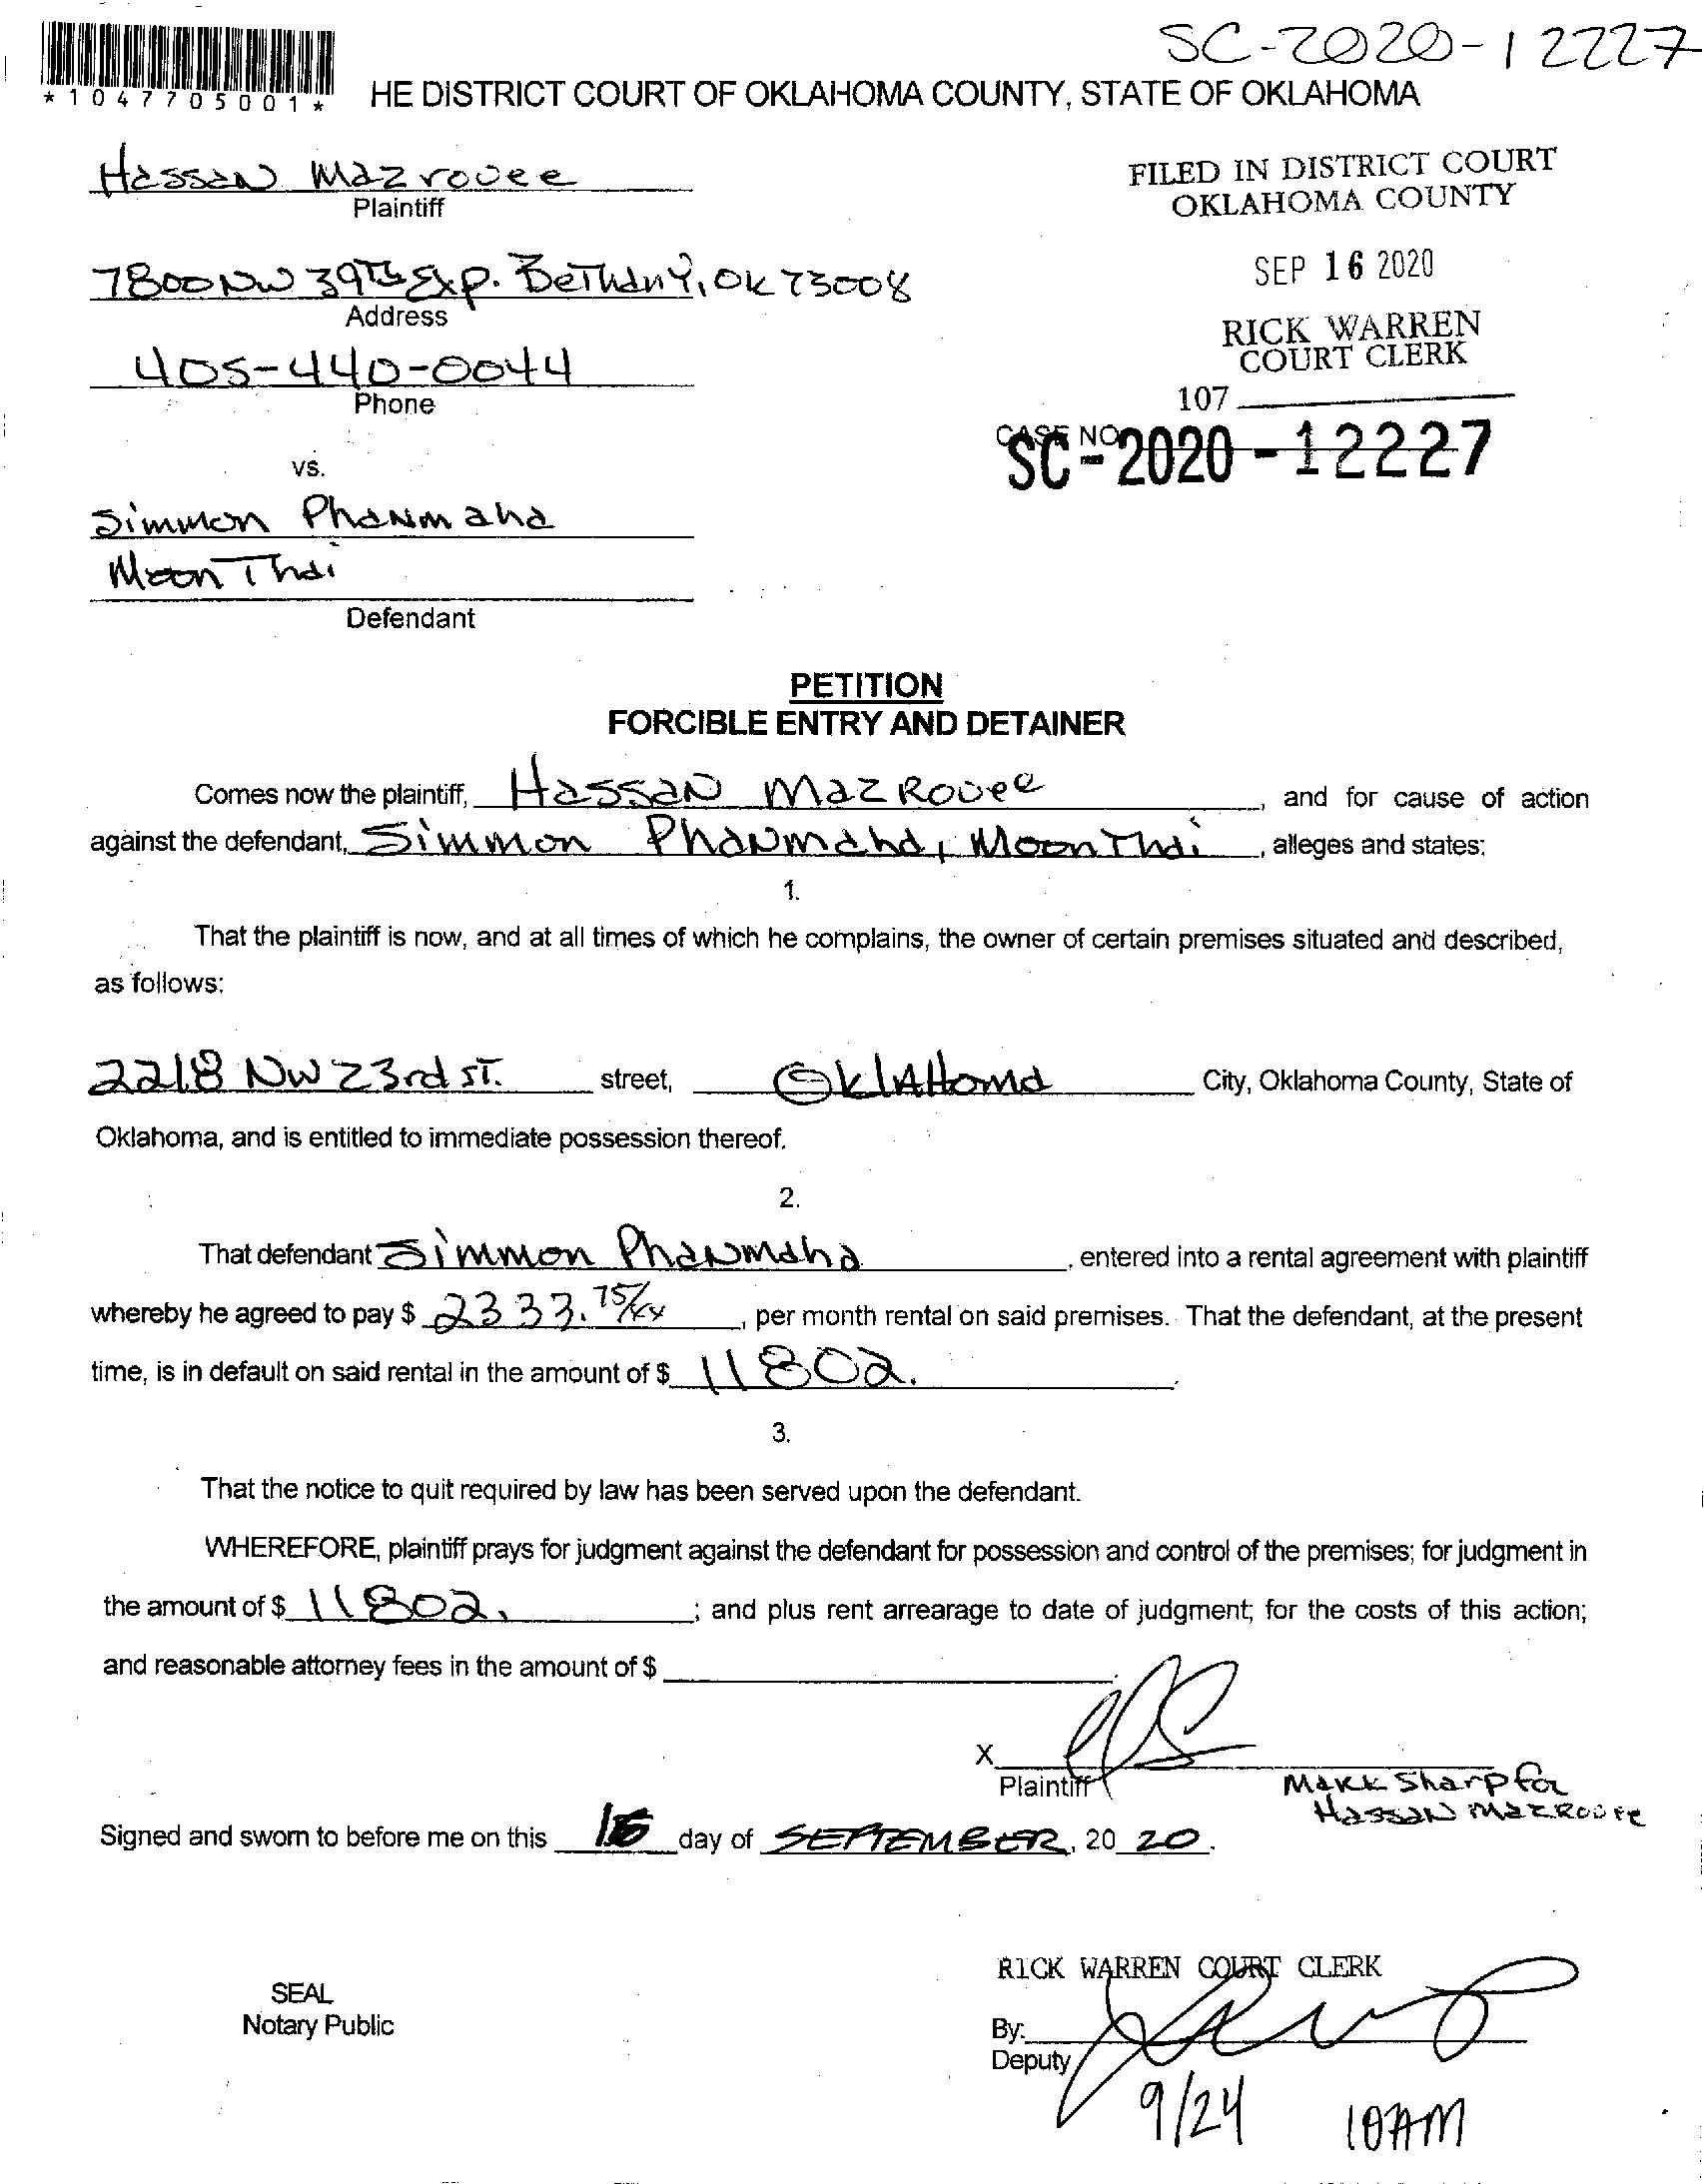 SC-2020-12227
*1047705001*
HE DISTRICT COURT OF OKLAHOMA COUNTY, STATE OF OKLAHOMA
Hassan Mazrouee
Plaintiff
FILED IN DISTRICT COURT
OKLAHOMA COUNTY
7800 NW 39th Exp. Bethany, OK 73008
Address
SEP 16 2020
405-440-0044
Phone
RICK WARREN
COURT CLERK
107
CASE NO.
SC-2020-12227
vs.
Simmon Phanmaha
Moon Thai
Defendant
PETITION
FORCIBLE ENTRY AND DETAINER
Comes now the plaintiff, Hassan Mazrouee, and for cause of action
against the defendant, Simmon Phanmaha, Moon Thai, alleges and states:
1.
That the plaintiff is now, and at all times of which he complains, the owner of certain premises situated and described,
as follows:
2218 NW 23rd ST. street, Oklahoma City, Oklahoma County, State of
Oklahoma, and is entitled to immediate possession thereof.
2.
That defendant Simmon Phanmaha, entered into a rental agreement with plaintiff
whereby he agreed to pay $ 2333.75/xx, per month rental on said premises. That the defendant, at the present
time, is in default on said rental in the amount of $ 11802.
3.
That the notice to quit required by law has been served upon the defendant.
WHEREFORE, plaintiff prays for judgment against the defendant for possession and control of the premises; for judgment in
the amount of $ 11802. ; and plus rent arrearage to date of judgment; for the costs of this action;
and reasonable attorney fees in the amount of $
X
Plaintiff
Mark Sharp for
Hassan Mazrouee
Signed and sworn to before me on this 16 day of SEPTEMBER, 20 20.
RICK WARREN COURT CLERK
SEAL
Notary Public
By:
Deputy
9/24 10AM